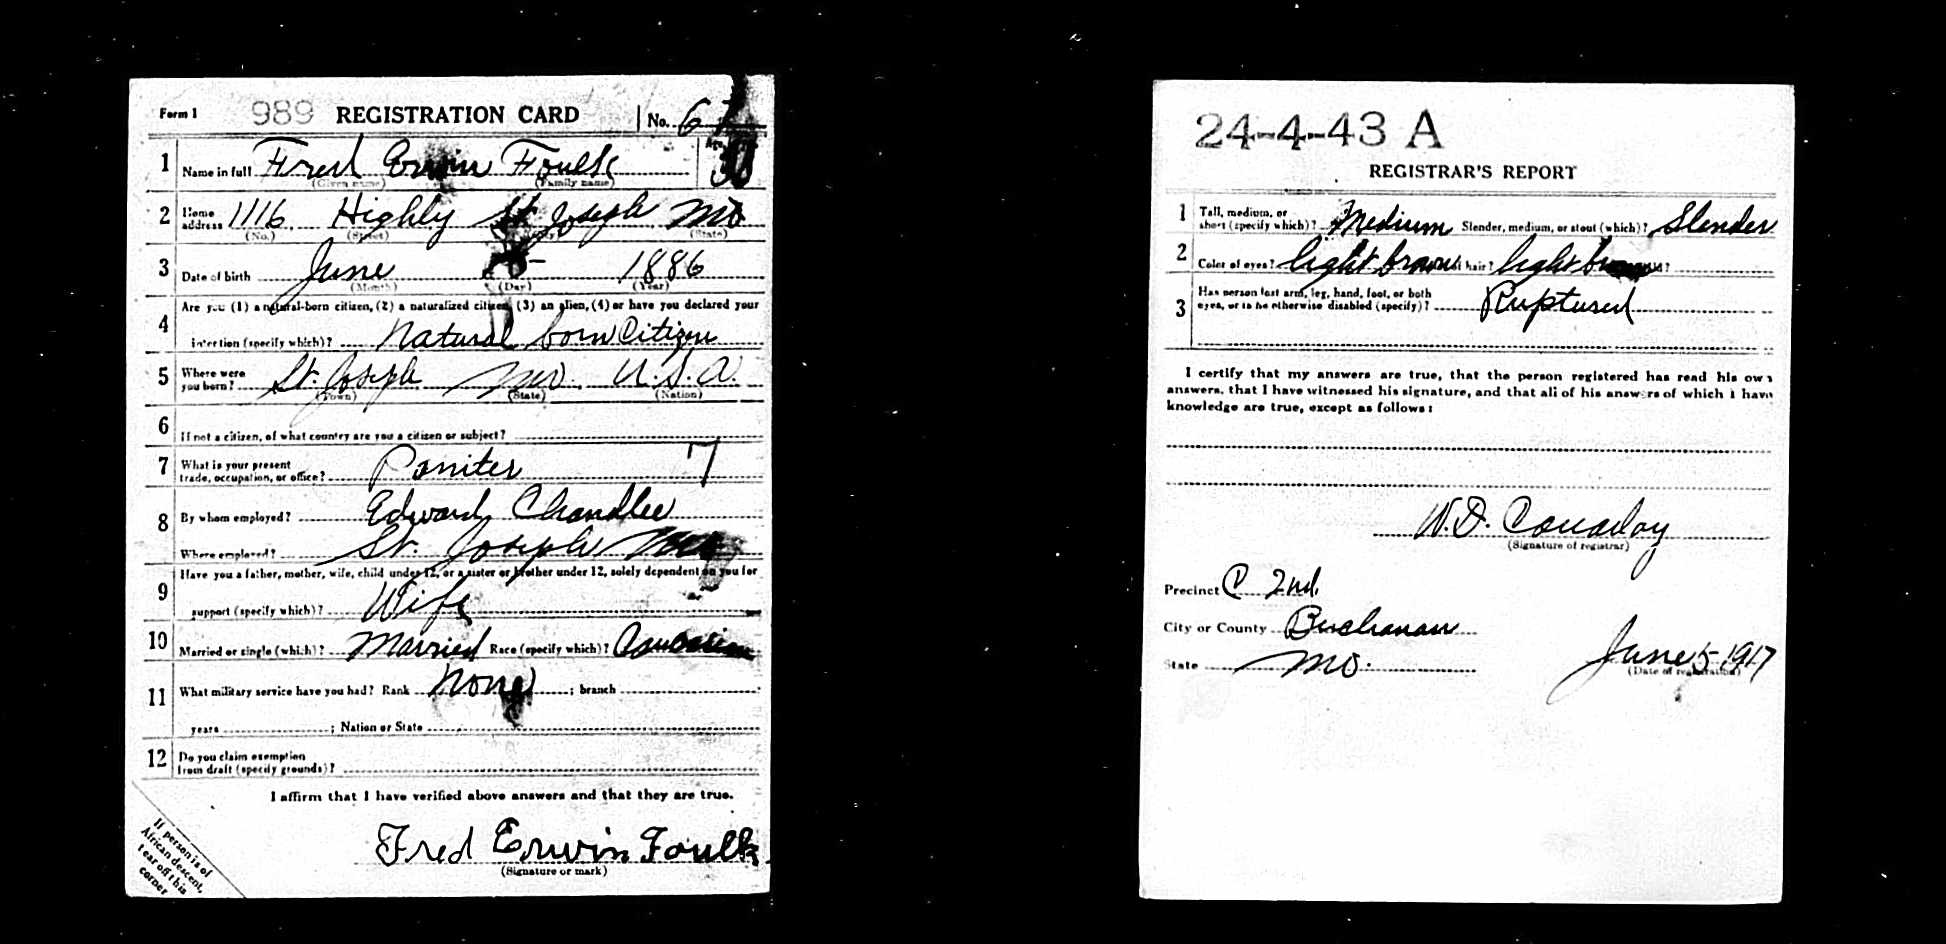 Form 1 989 REGISTRATION CARD No. 67
1 Name in full Fred Erwin Foulk
(Given name) (Family name)
2 Home address 1116 Highly St Joseph Mo
(No.) (Street) (State)
3 Date of birth June 1886
(Month) (Day) (Year)
Are you (1) a natural-born citizen, (2) a naturalized citizen, (3) an alien, (4) or have you declared your
4 intention (specify which)? Natural born Citizen
5 Where were you born? St. Joseph Mo. U.S.A.
(Town) (State) (Nation)
6 If not a citizen, of what country are you a citizen or subject?
7 What is your present trade, occupation, or office? Paniter 7
8 By whom employed? Edward Chandlee
Where employed? St. Joseph Mo
9 Have you a father, mother, wife, child under 12, or a sister or brother under 12, solely dependent on you for
support (specify which)? Wife
10 Married or single (which)? Married Race (specify which)? Caucasian
11 What military service have you had? Rank None ; branch
years ; Nation or State
12 Do you claim exemption from draft (specify grounds)?
I affirm that I have verified above answers and that they are true.
Fred Erwin Foulk
(Signature or mark)
If person is of
African descent,
tear off this
corner
24-4-43 A
REGISTRAR'S REPORT
1 Tall, medium, or short (specify which)? Medium Slender, medium, or stout (which)? Slender
2 Color of eyes? light brown hair? light brown
3 Has person lost arm, leg, hand, foot, or both eyes, or is he otherwise disabled (specify)? Ruptured
I certify that my answers are true, that the person registered has read his own
answers, that I have witnessed his signature, and that all of his answers of which I have
knowledge are true, except as follows:
W.D. Conaday
(Signature of registrar)
Precinct 2nd
City or County Buchanan
State Mo. June 5, 1917
(Date of registration)